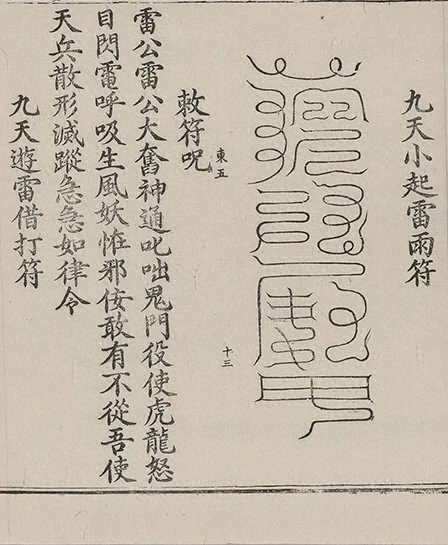 九天小起雷雨符
東五
十三
敕符呪
雷公雷公大奮神通叱咄鬼門役使虎龍怒
目閃電呼吸生風妖怪邪佞敢有不從吾使
天兵散形滅蹤急急如律令
九天遊雷借打符